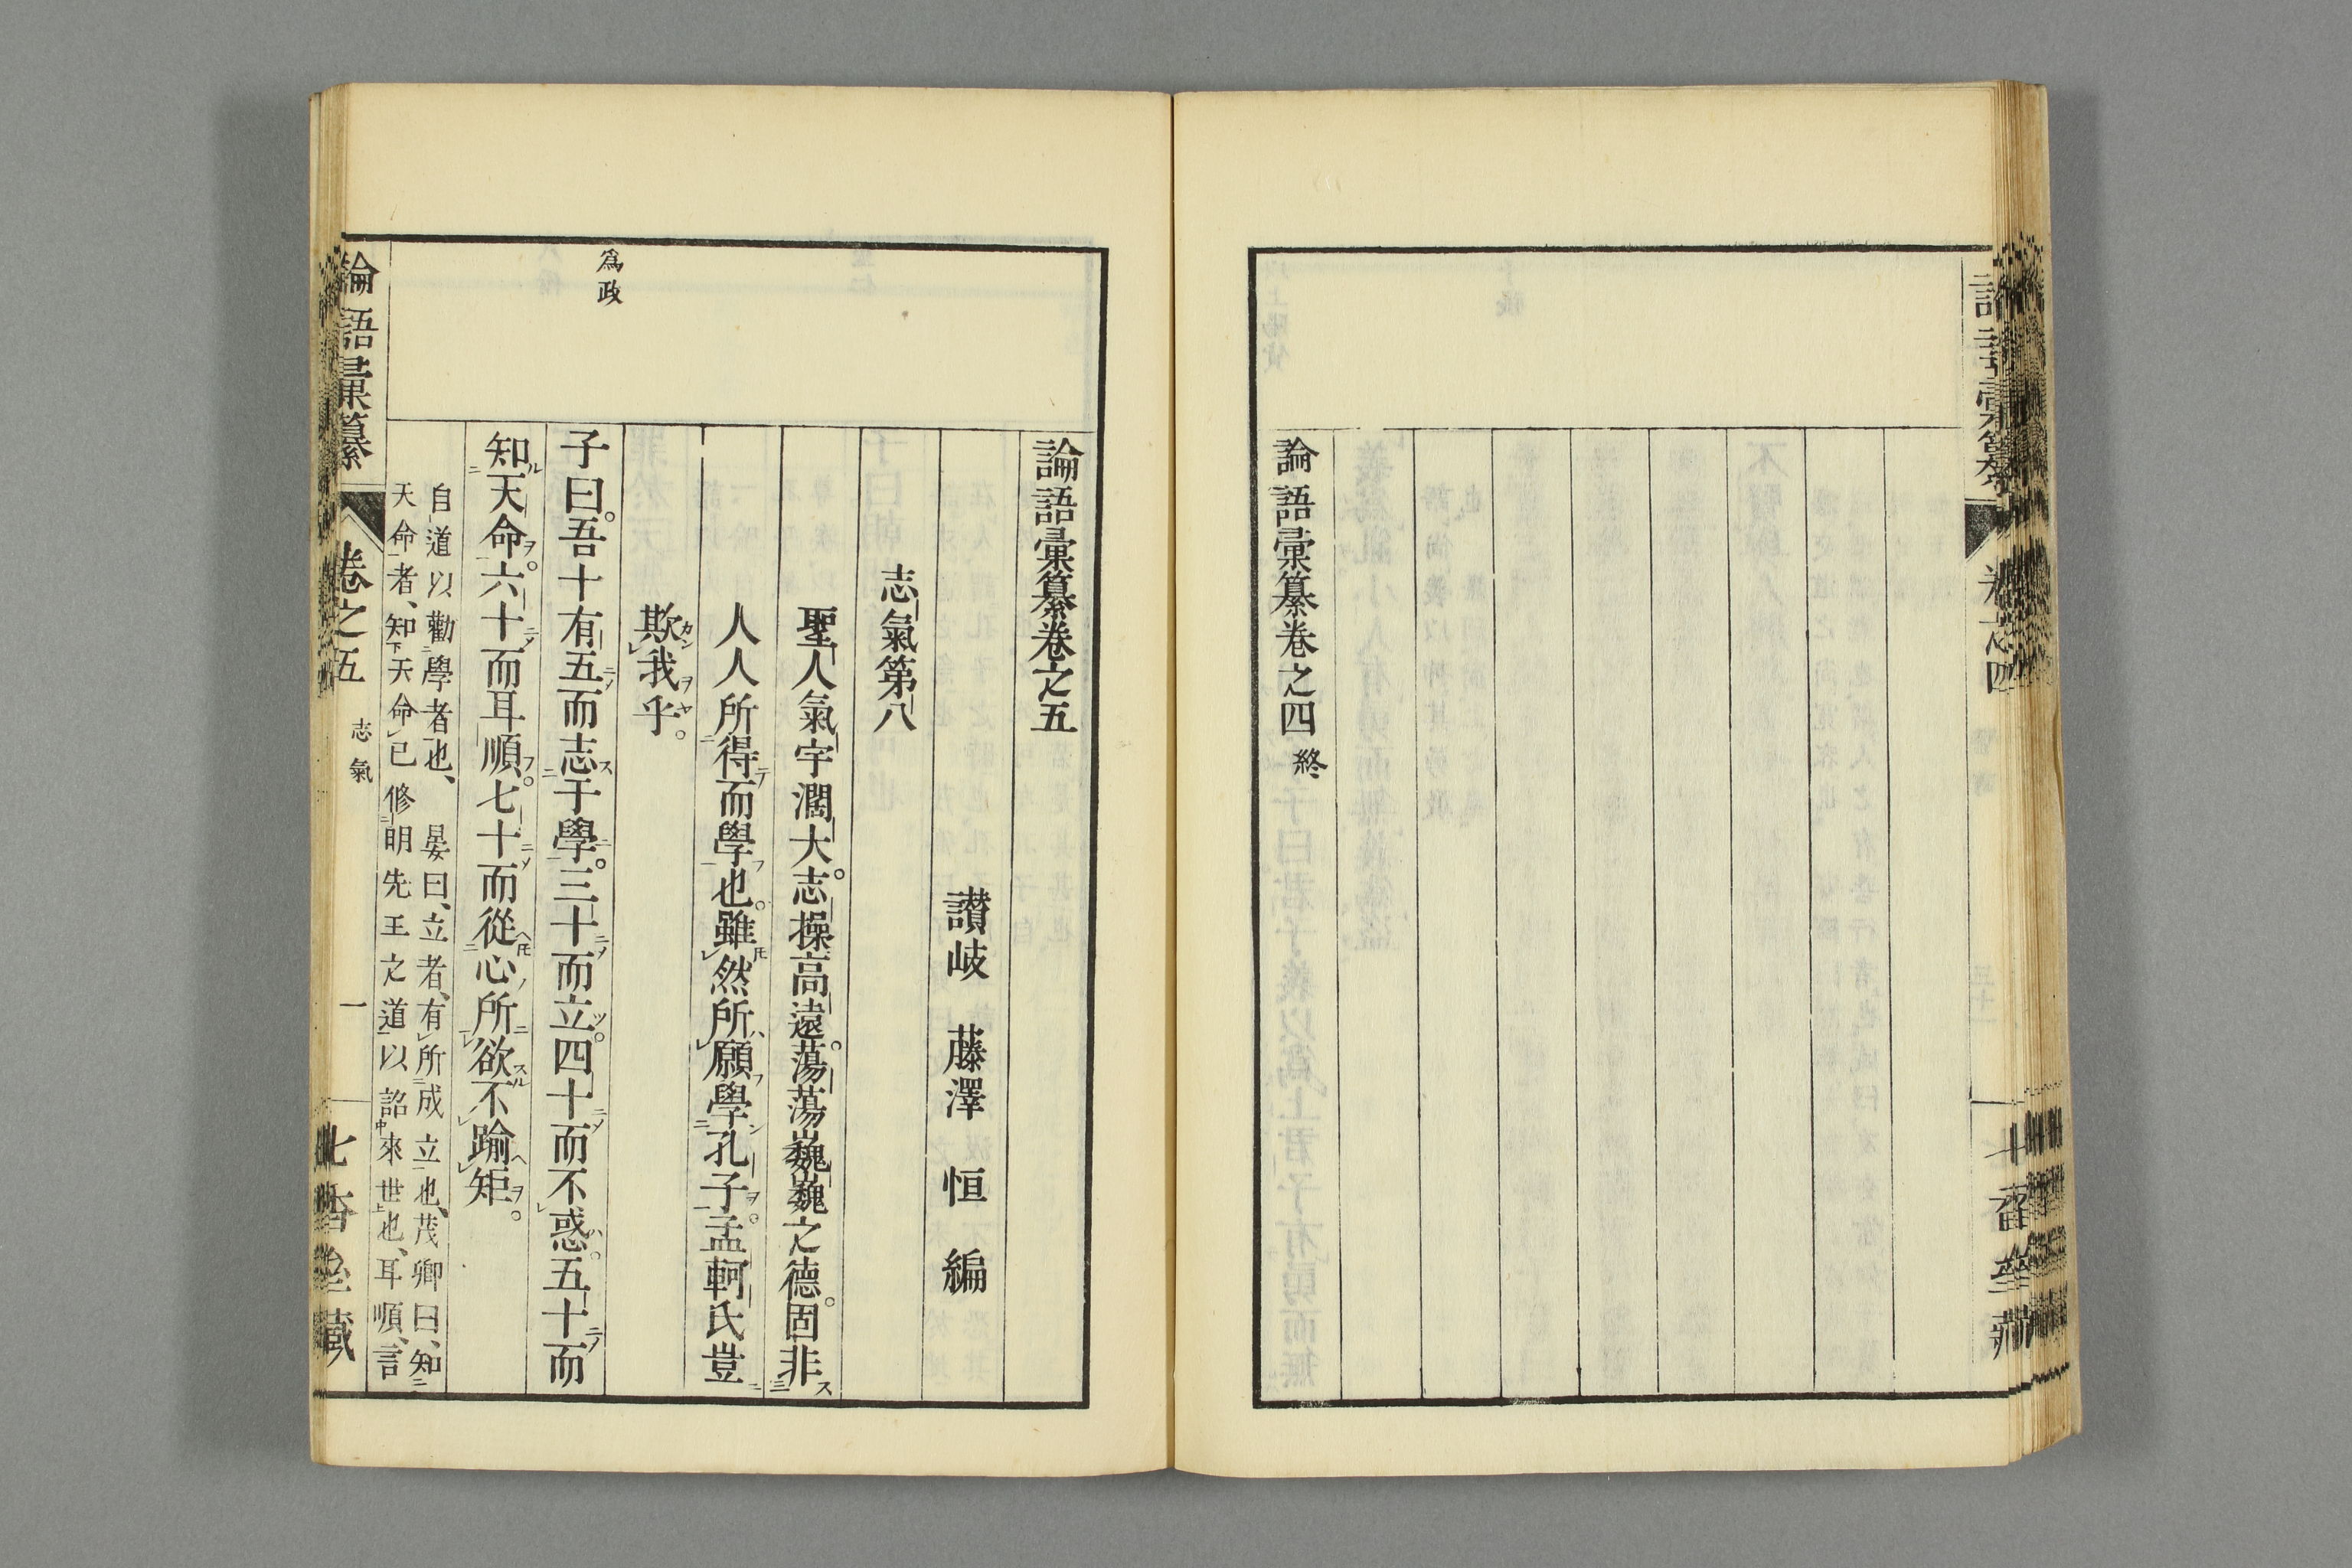 論語彙纂卷之四終
論語彙纂卷之五
讃岐 藤澤 恒 編
志氣第八
聖人氣宇濶大。志操高遠。蕩蕩巍巍之德。固非
人人所得而學也。雖然所願學孔子。孟軻氏豈
欺我乎。
爲政
子曰。吾十有五而志于學。三十而立。四十而不惑。五十而
知天命。六十而耳順。七十而從心所欲不踰矩。
自道以勸學者也、 晏曰、立者、有所成立也、茂卿曰、知
天命者、知天命已修明先王之道以詔來世也、耳順、言
論語彙纂 卷之五 志氣 一